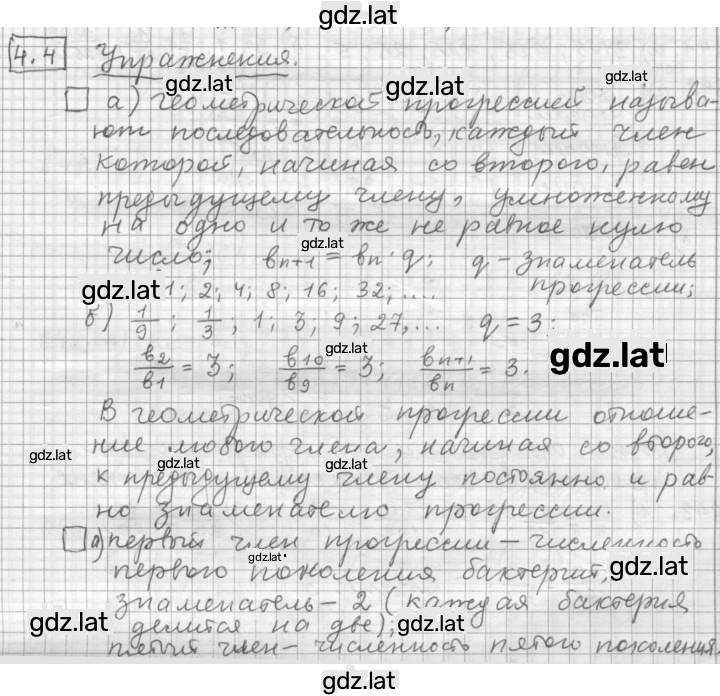 gdz.lat
4.4 Упражнения.
gdz.lat gdz.lat gdz.lat
а) геометрической прогрессией называ-
ют последовательность, каждый член
которой, начиная со второго, равен
предыдущему члену, умноженному
на одно и то же не равное нулю
gdz.lat
число; bn+1 = bn · q; q - знаменатель
прогрессии;
gdz.lat 1; 2; 4; 8; 16; 32; ....
б) 1/9; 1/3; 1; 3; 9; 27,... q = 3:
gdz.lat gdz.lat
b2/b1 = 3; b10/b9 = 3; bn+1/bn = 3.
В геометрической прогрессии отноше-
ние любого члена, начиная со второго,
gdz.lat gdz.lat gdz.lat
к предыдущему члену постоянно и рав-
но знаменателю прогрессии.
а) первый член прогрессии - численность
gdz.lat gdz.lat
первого поколения бактерий,
знаменатель - 2 (каждая бактерия
gdz.lat делится на две); gdz.lat
пятый член - численность пятого поколения.
gdz.lat